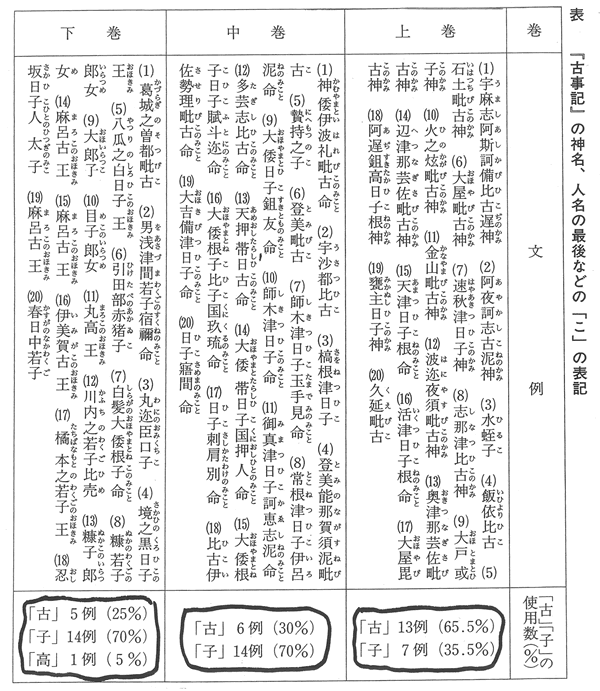 表　『古事記』の神名、人名の最後などの「こ」の表記
巻
文例
「古」「子」の使用数(%)
上巻
(1)宇麻志阿斯訶備比古遅神　(2)阿夜訶志古泥神　(3)水蛭子　(4)飯依比古　(5)
石土毗古神　(6)大屋毗古神　(7)速秋津日子神　(8)志那津比古神　(9)大戸或
子神　(10)火之炫毗古神　(11)金山毗古神　(12)波迩夜須毗古神　(13)奥津那芸佐毗
古神　(14)辺津那芸佐毗古神　(15)天津日子根命　(16)活津日子根命　(17)大屋毘
古神　(18)阿遅鉏高日子根神　(19)甕主日子神　(20)久延毗古
「古」13例(65.5%)
「子」7例(35.5%)
中巻
(1)神倭伊波礼毗古命　(2)宇沙都比古　(3)槁根津日子　(4)登美能那賀須泥毗
古　(5)贄持之子　(6)登美毗古　(7)師木津日子玉手見命　(8)常根津日子伊呂
泥命　(9)大倭日子鉏友命　(10)師木津日子命　(11)御真津日子訶恵志泥命
(12)多芸志比古命　(13)天押帯日古命　(14)大倭帯日子国押人命　(15)大倭根
子日子賦斗迩命　(16)大倭根子比子国玖琉命　(17)日子刺肩別命　(18)比古伊
佐勢理毗古命　(19)大吉備津日子命　(20)日子寤間命
「古」6例(30%)
「子」14例(70%)
下巻
(1)葛城之曽都毗古　(2)男浅津間若子宿禰命　(3)丸迩臣口子　(4)境之黒日子
王　(5)八瓜之白日子王　(6)引田部赤猪子　(7)白髪大倭根子命　(8)糠若子
郎女　(9)大郎子　(10)目子郎女　(11)丸高王　(12)川内之若子比売　(13)糠子郎
女　(14)麻呂古王　(15)麻呂古王　(16)伊美賀古王　(17)橘本之若子王　(18)忍
坂日子人太子　(19)麻呂古王　(20)春日中若子
「古」5例(25%)
「子」14例(70%)
「高」1例(5%)